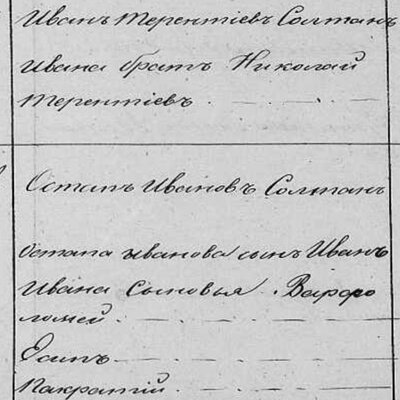 Иванъ Терентіевъ Солтанъ
Ивана братъ Николай
Терентіевъ
Остапъ Ивановъ Солтанъ
Остапа Иванова сынъ Иванъ
Ивана сыновья. Варфо
ломей
Есипъ
Пакратій